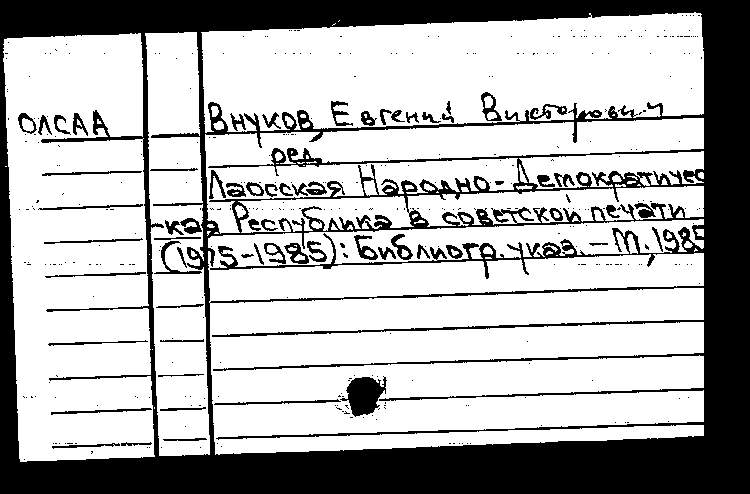 ОЛСАА Внуков, Евгений Викторович
ред.
Лаосская Народно-Демократичес
-кая Республика в советской печати
(1975-1985): Библиогр. указ. - М., 1985